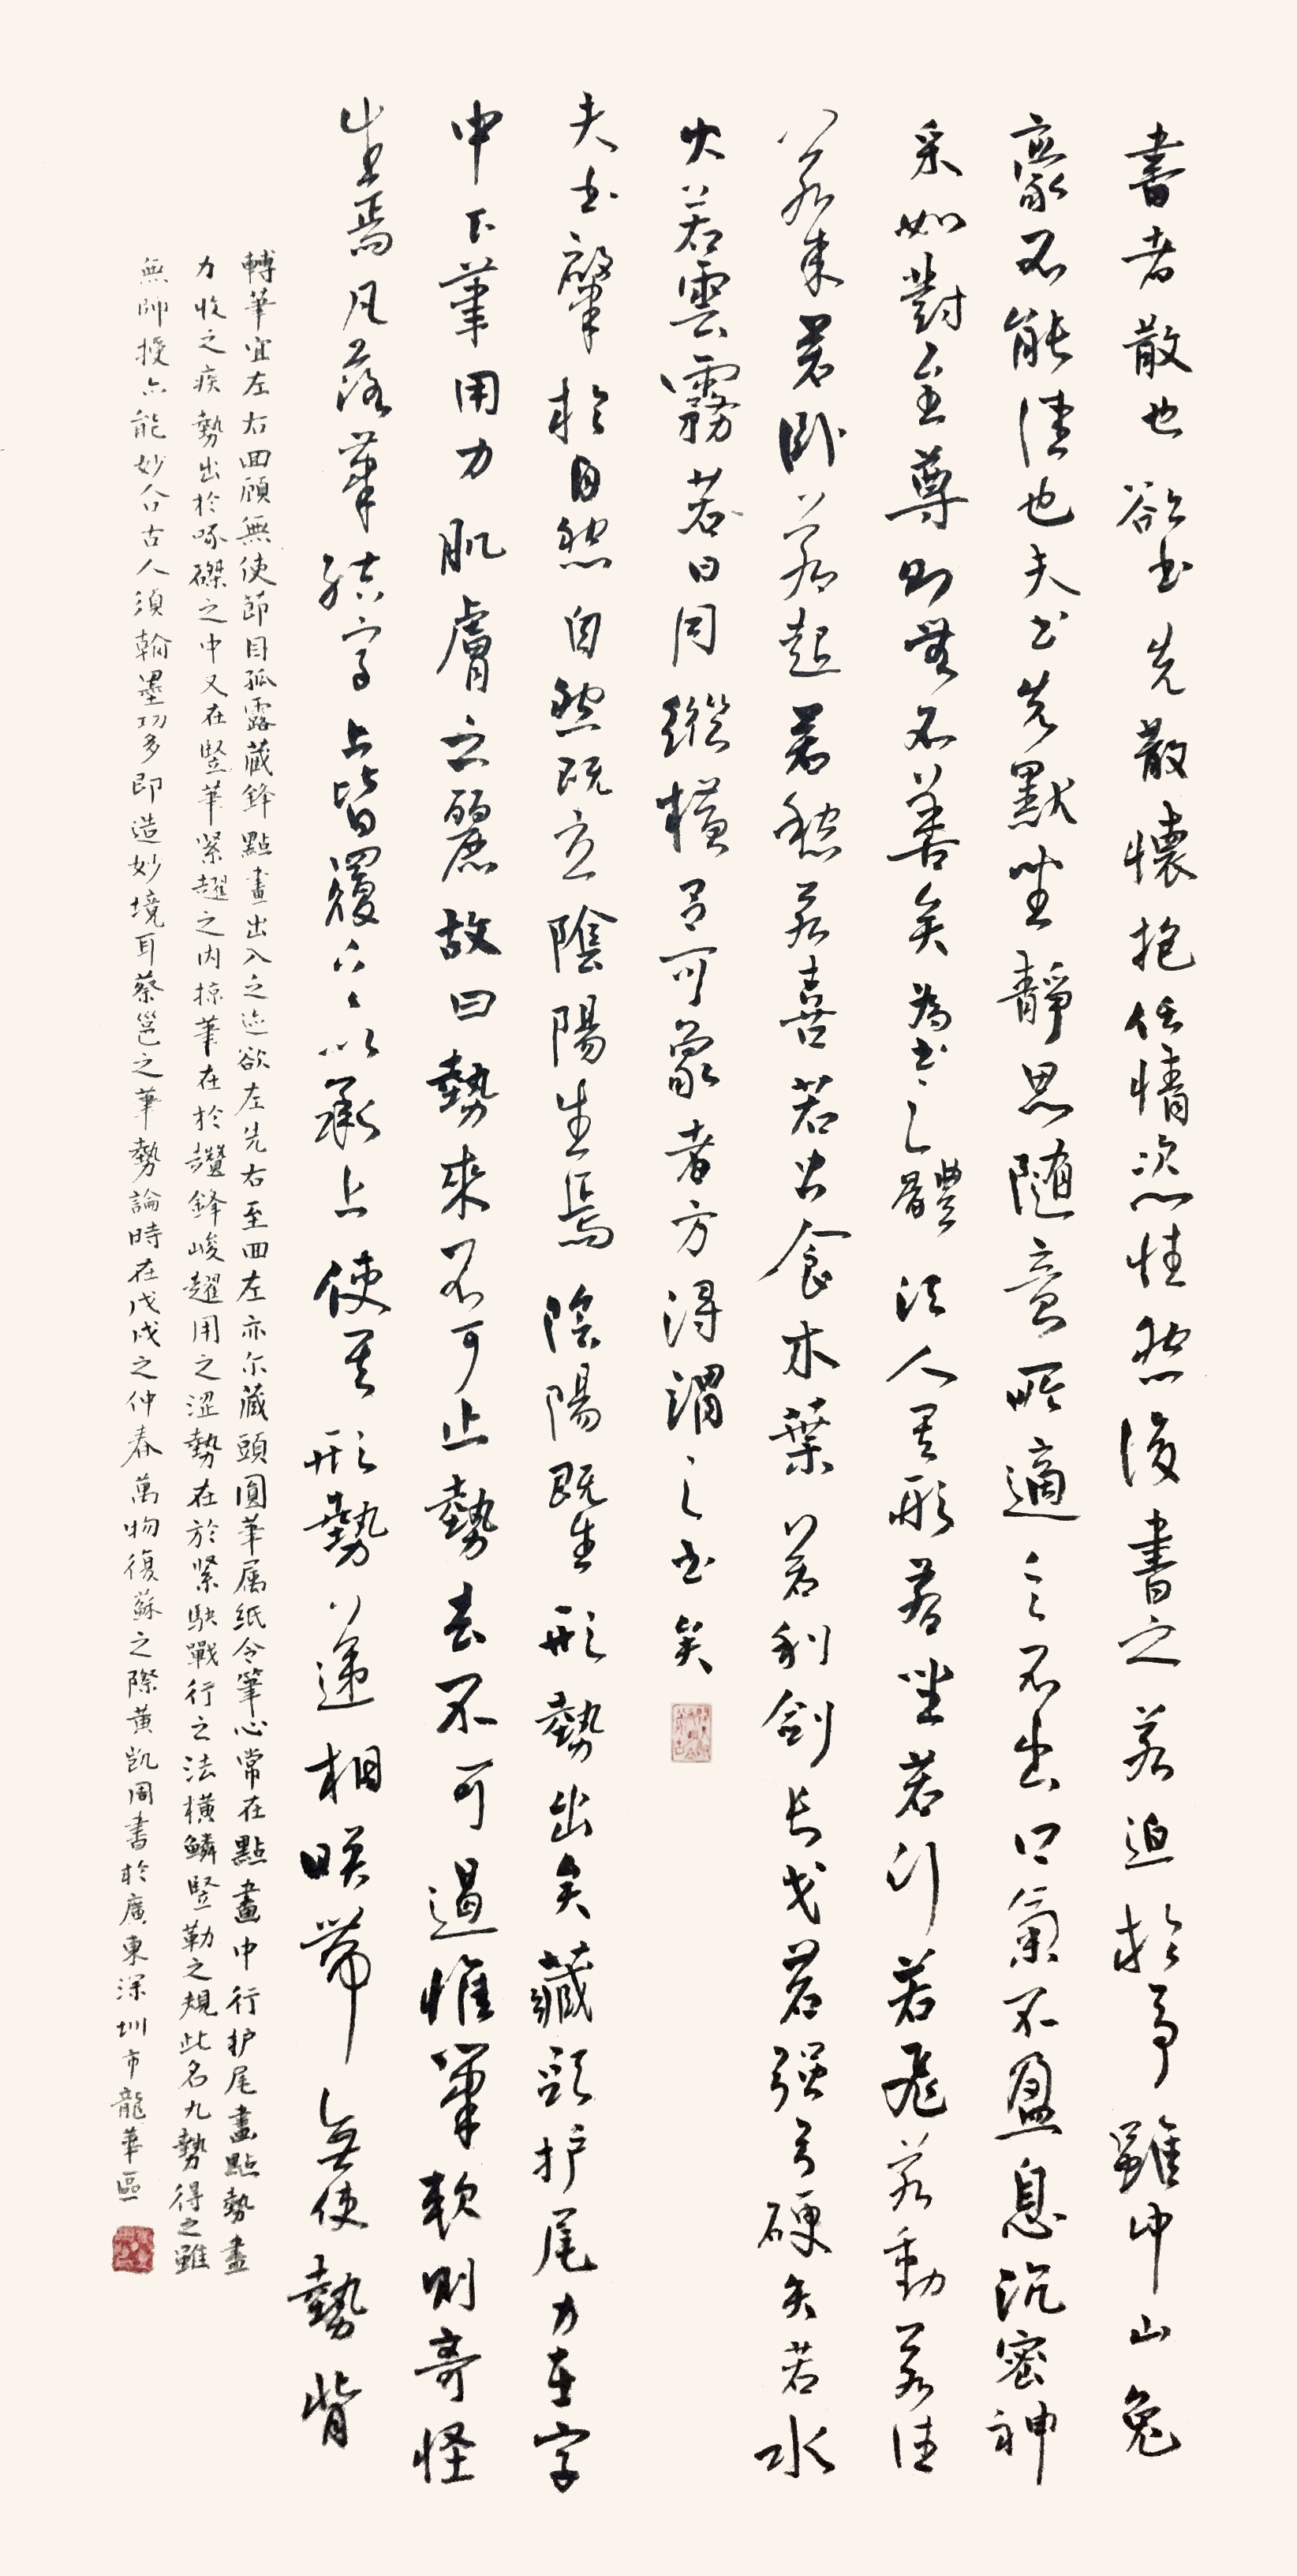 書者散也欲書先散懷抱任情恣性然後書之若迫於事雖中山兔
豪不能佳也夫書先默坐靜思隨意所適言不出口氣不盈息沉密神
采如對至尊則無不善矣為書之體須入其形若坐若行若飛若動若往
若來若臥若起若愁若喜若虫食木葉若利劍长戈若强弓硬矢若水
火若雲霧若日月縱橫有可象者方得謂之書矣
夫書肇於自然自然既立陰陽生焉陰陽既生形勢出矣藏頭护尾力在字
中下筆用力肌膚之麗故曰勢來不可止勢去不可遏惟筆軟則奇怪
生焉凡落筆結字上皆覆下下以承上使其形勢遞相映帶無使勢背
轉筆宜左右回顧無使節目孤露藏鋒點畫出入之迹欲左先右至回左亦尔藏頭圓筆属紙令筆心常在點畫中行护尾畫點勢盡
力收之疾勢出於啄磔之中又在竪筆緊趯之内掠筆在於趲鋒峻趯用之澀勢在於緊駃戰行之法橫鱗竪勒之規此名九勢得之雖
無師授亦能妙合古人須翰墨功多即造妙境耳蔡邕之筆勢論時在戊戌之仲春萬物復蘇之際黄凯周書於廣東深圳市龍華區